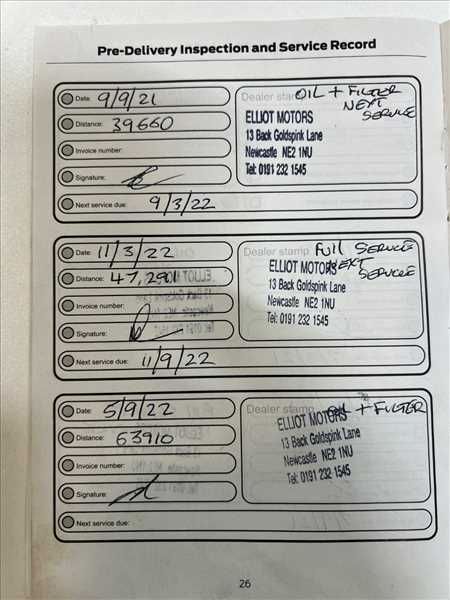 Pre-Delivery Inspection and Service Record
Date: 9/9/21
Distance: 39660
Invoice number:
Signature:
Next service due: 9/3/22
Dealer stamp OIL + FILTER
NEXT
SERVICE
ELLIOT MOTORS
13 Back Goldspink Lane
Newcastle NE2 1NU
Tel: 0191 232 1545
Date: 11/3/22
Distance: 47,290
Invoice number:
Signature:
Next service due: 11/9/22
Dealer stamp FULL SERVICE
NEXT
SERVICE
ELLIOT MOTORS
13 Back Goldspink Lane
Newcastle NE2 1NU
Tel: 0191 232 1545
Date: 5/9/22
Distance: 63910
Invoice number:
Signature:
Next service due:
Dealer stamp OIL + FILTER
ELLIOT MOTORS
13 Back Goldspink Lane
Newcastle NE2 1NU
Tel: 0191 232 1545
26